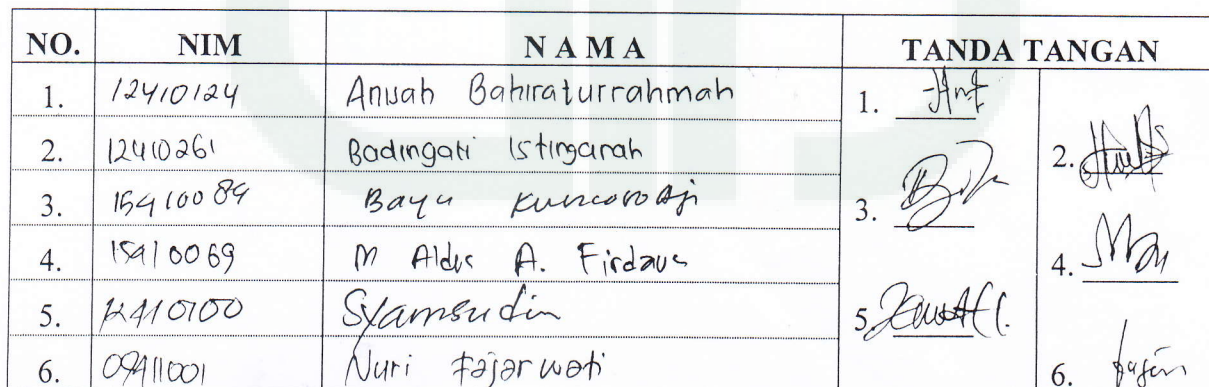 NO. NIM N A M A TANDA TANGAN
1. 12410124 Anisah Bahiraturrahmah 1.
2. 12410261 Badingati Istinganah 2.
3. 15410089 Bayu Kuncoro Aji 3.
4. 15410069 M Aldus A. Firdaus 4.
5. 12410100 Syamsudin 5.
6. 09411001 Nuri Fajarwati 6.